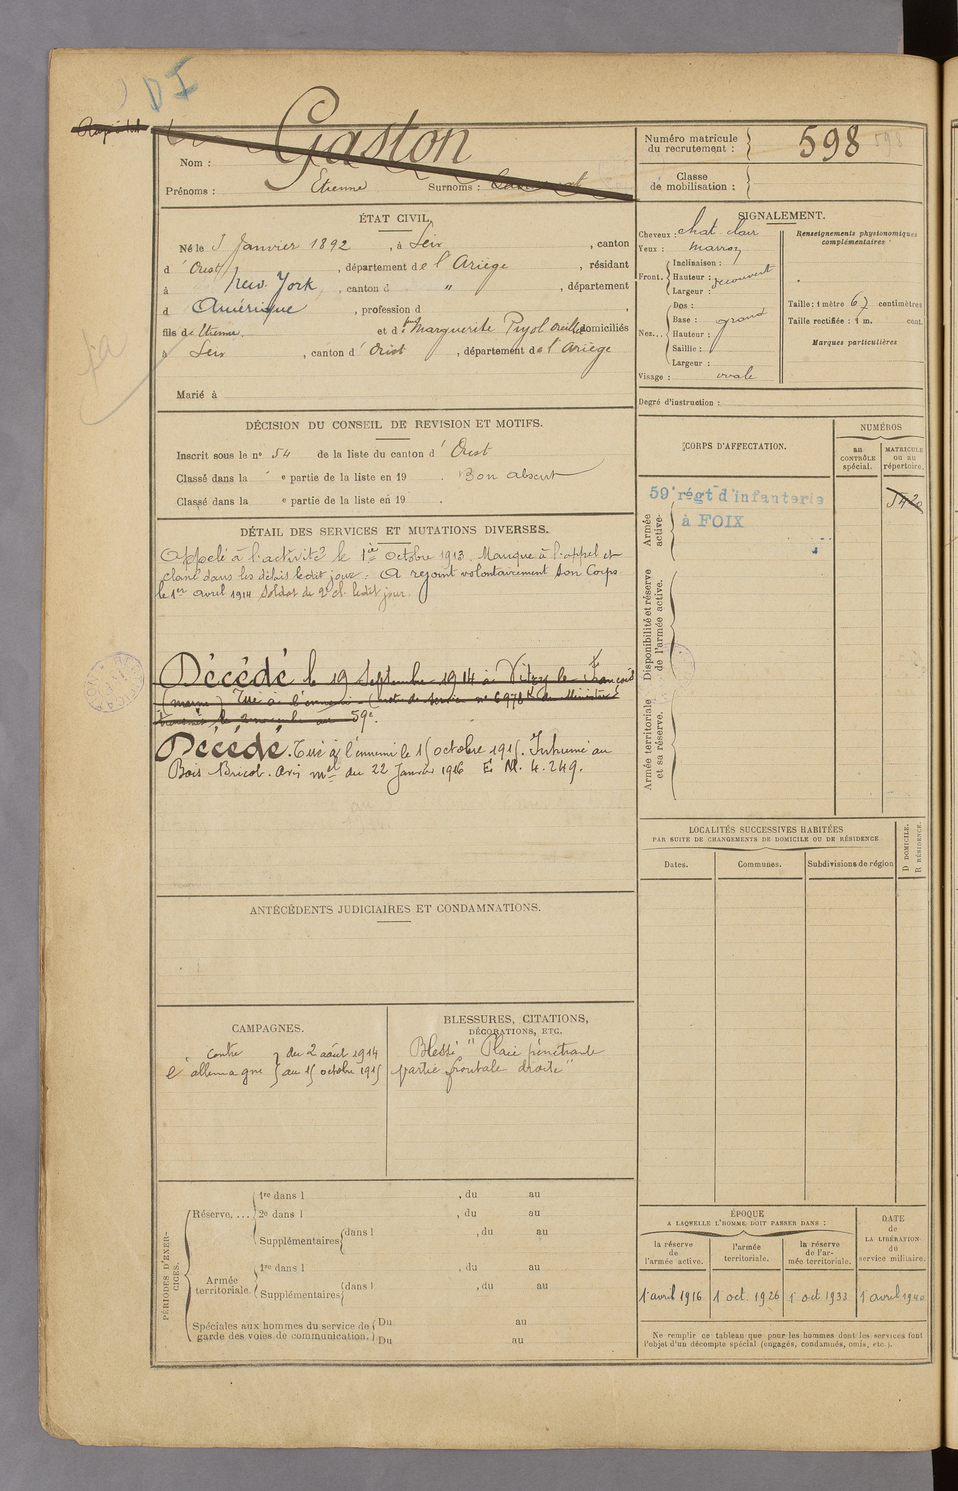 DI
Gaston
Nom :
Prénoms : Etienne Surnoms :
Numéro matricule du recrutement : 598
Classe de mobilisation :
ÉTAT CIVIL.
Né le 3 Janvier 1892, à Seix, canton
d'Oust, département de l'Ariège, résidant
à New-York, canton d ", département
d Amérique, profession d
fils de Etienne et de Marguerite Pujol domiciliés
à Seix, canton d'Oust, département de l'Ariège
Marié à
SIGNALEMENT.
Cheveux : chat. clair
Yeux : marron
Front. Inclinaison :
Hauteur : découvert
Largeur :
Nez... Dos :
Base : grand
Hauteur :
Saillie :
Largeur :
Visage : ovale
Renseignements physionomiques complémentaires
Taille : 1 mètre 67 centimètres
Taille rectifiée : 1 m. cent.
Marques particulières
Degré d'instruction :
DÉCISION DU CONSEIL DE REVISION ET MOTIFS.
Inscrit sous le n° 54 de la liste du canton d'Oust
Classé dans la e partie de la liste en 19 . Bon absent
Classé dans la e partie de la liste en 19 .
CORPS D'AFFECTATION.
NUMÉROS
au CONTRÔLE spécial.
MATRICULE ou au répertoire.
Armée active.
59e régt d'infanterie
à FOIX
5420
Disponibilité et réserve de l'armée active.
Armée territoriale et sa réserve.
DÉTAIL DES SERVICES ET MUTATIONS DIVERSES.
Appelé à l'activité le 1er octobre 1913. Manque à l'appel et
classé dans les délais ledit jour. A rejoint volontairement son Corps
le 1er avril 1914 Soldat de 2e cl. ledit jour.
Décédé le 19 Septembre 1914 à Vitry-le-François
(marne) Tué à l'ennemi (note de service n° 6978 K du Ministre
59e.
Décédé. Tué à l'ennemi le 15 octobre 1915. Inhumé au
Bois Bricot. avis mel du 22 Janvier 1916 E. M. 4.249.
LOCALITÉS SUCCESSIVES HABITÉES
PAR SUITE DE CHANGEMENTS DE DOMICILE OU DE RÉSIDENCE
Dates. Communes. Subdivisions de région
D DOMICILE. R RÉSIDENCE.
ANTÉCÉDENTS JUDICIAIRES ET CONDAMNATIONS.
CAMPAGNES.
contre l'allemagne du 2 août 1914
au 15 octobre 1915
BLESSURES, CITATIONS,
DÉCORATIONS, ETC.
Blessé "Plaie pénétrante
partie frontale droite"
PÉRIODES D'EXERCICES.
Réserve....
1re dans l , du au
2e dans l , du au
Supplémentaires dans l , du au
Armée territoriale.
1re dans l , du au
Supplémentaires dans l , du au
Spéciales aux hommes du service de garde des voies de communication.
Du au
Du au
ÉPOQUE
A LAQUELLE L'HOMME DOIT PASSER DANS :
DATE de LA LIBÉRATION du service militaire.
la réserve de l'armée active.
l'armée territoriale.
la réserve de l'armée territoriale.
1 avril 1916 1 oct. 1926 1 oct 1933 1 avril 1940
Ne remplir ce tableau que pour les hommes dont les services font
l'objet d'un décompte spécial (engagés, condamnés, omis, etc.).